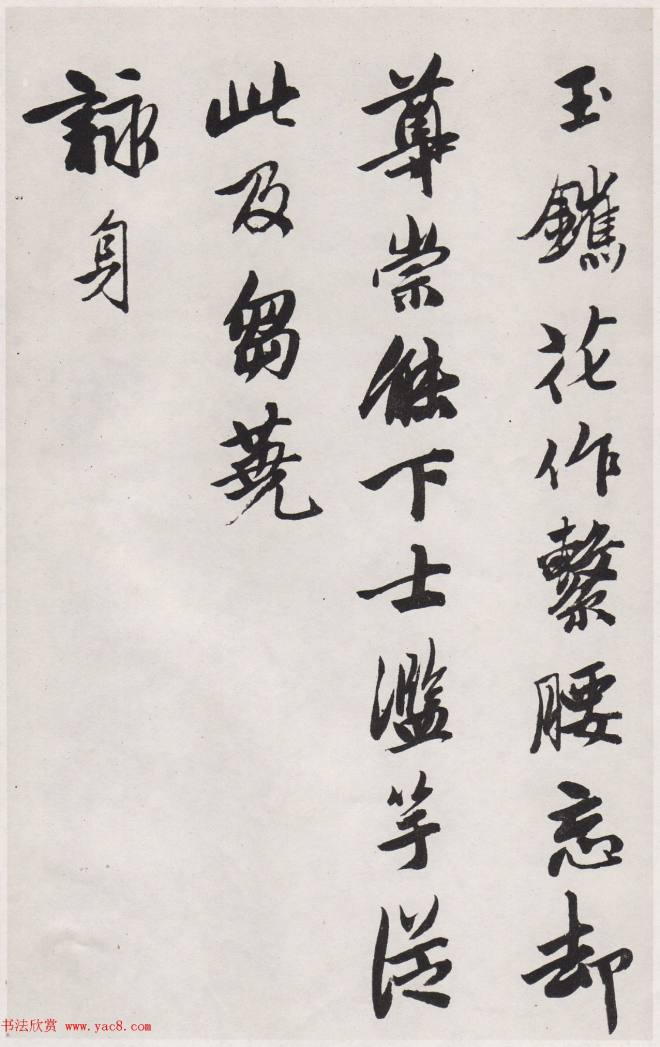 玉鑴花作繫腰忘却
尊崇能下士濫竽從
此及芻蕘
詠身
书法欣赏 www.yac8.com